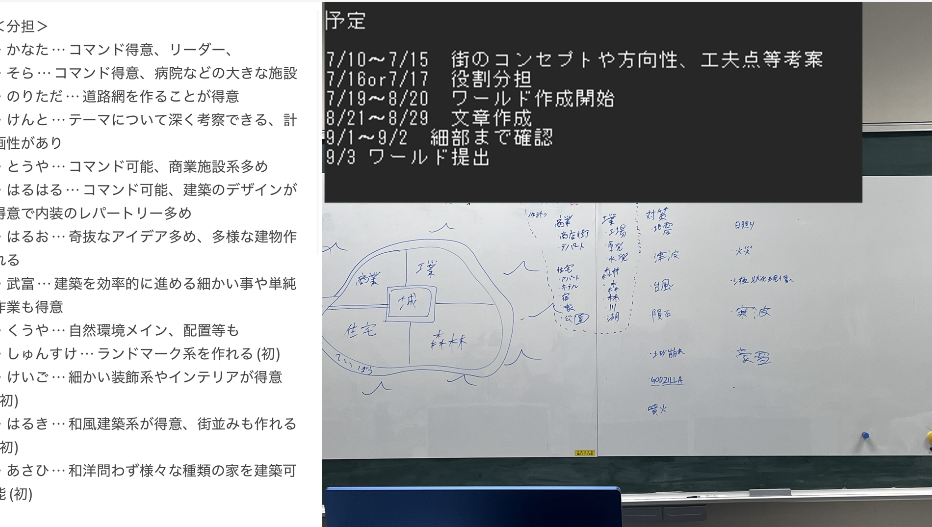 ＜分担＞
・かなた…コマンド得意、リーダー、
・そら…コマンド得意、病院などの大きな施設
・のりただ…道路網を作ることが得意
・けんと…テーマについて深く考察できる、計
画性があり
・とうや…コマンド可能、商業施設系多め
・はるはる…コマンド可能、建築のデザインが
得意で内装のレパートリー多め
・はるお…奇抜なアイデア多め、多様な建物作
れる
・武富…建築を効率的に進める細かい事や単純
作業も得意
・くうや…自然環境メイン、配置等も
・しゅんすけ…ランドマーク系を作れる(初)
・けいご…細かい装飾系やインテリアが得意
(初)
・はるき…和風建築系が得意、街並みも作れる
(初)
・あさひ…和洋問わず様々な種類の家を建築可
能(初)
予定
7/10～7/15　街のコンセプトや方向性、工夫点等考案
7/16or7/17　役割分担
7/19～8/20　ワールド作成開始
8/21～8/29　文章作成
9/1～9/2　細部まで確認
9/3 ワールド提出
商業
工業
城
住宅
森林
商業
商店街
デパート
住宅
アパート
ホテル
公園
工業
工場
森林
森
林
川
湖
対策
地震
津波
台風
隕石
GODZILLA
噴火
日照り
火災
寒波
豪雪